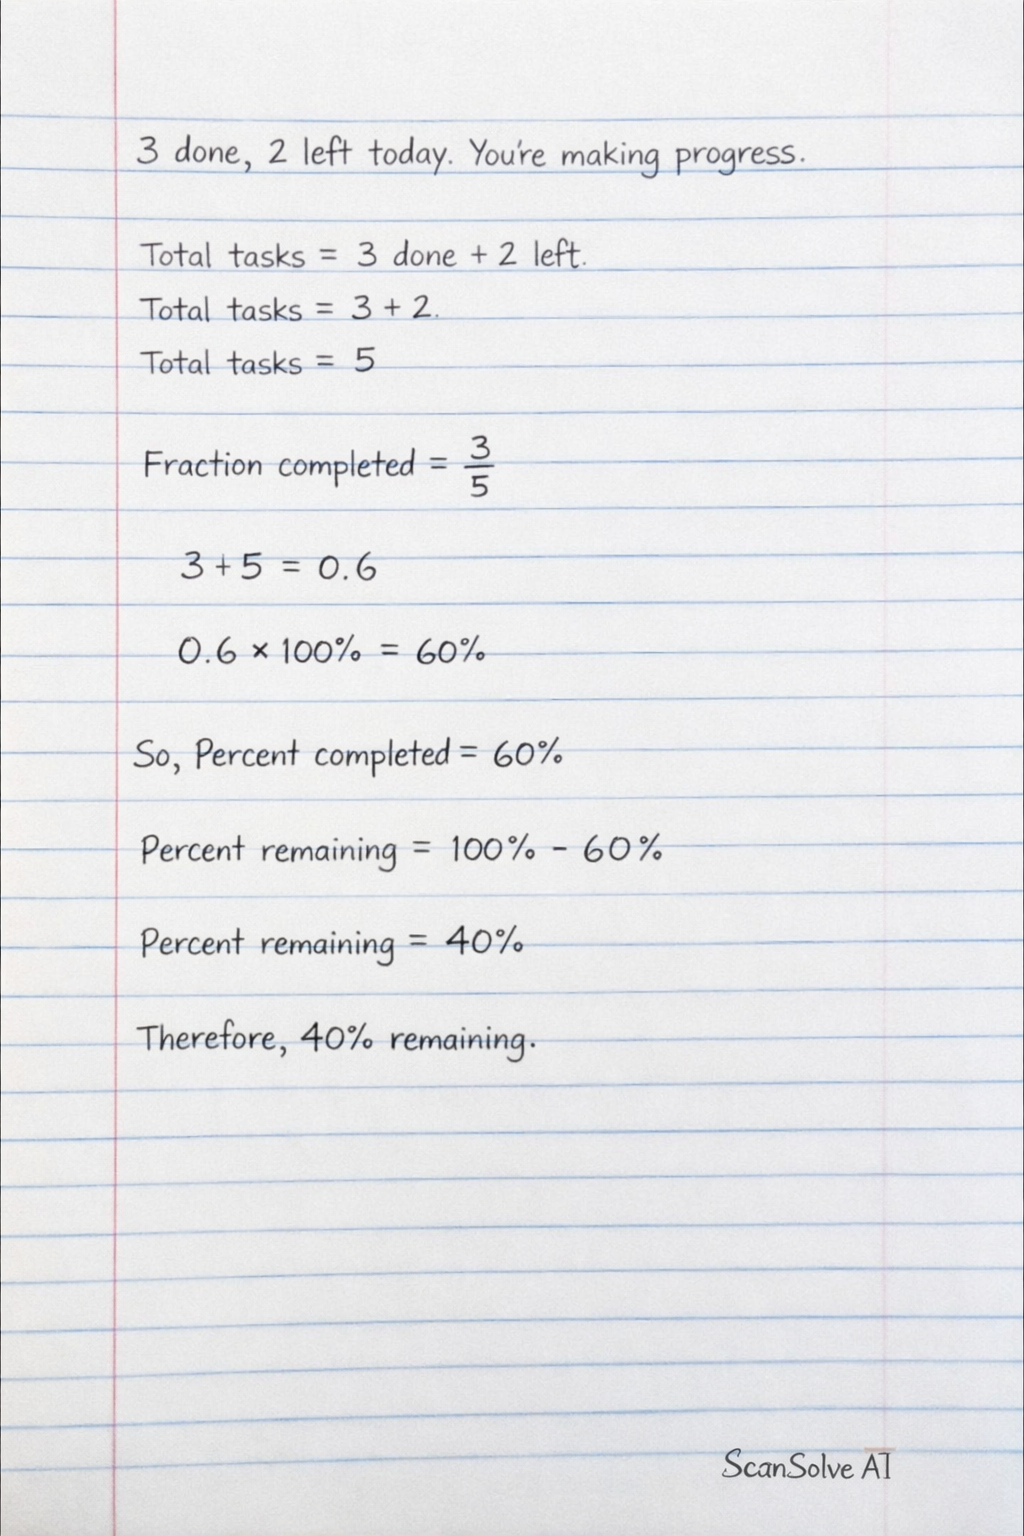 3 done, 2 left today. You're making progress.
Total tasks = 3 done + 2 left.
Total tasks = 3 + 2.
Total tasks = 5
Fraction completed = 3/5
3 + 5 = 0.6
0.6 × 100% = 60%
So, Percent completed = 60%
Percent remaining = 100% - 60%
Percent remaining = 40%
Therefore, 40% remaining.
ScanSolve AI